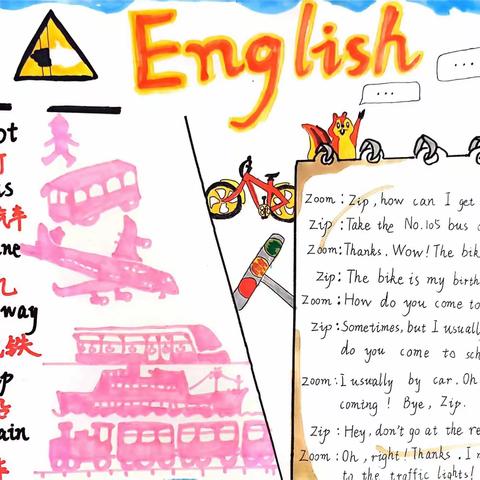 English
...
...
ot
is
汽车
ne
way
地铁
p
ain
Zoom: Zip, how can I get
Zip: Take the No.105 bus
Zoom: Thanks. Wow! The bik
Zip: The bike is my birth
Zoom: How do you come to
Zip: Sometimes, but I usuall
do you come to sch
Zoom: I usually by car. Oh
coming! Bye, Zip.
Zip: Hey, don't go at the re
Zoom: Oh, right! Thanks. I
to the traffic lights!